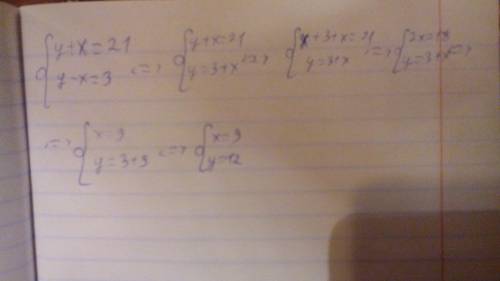 {y+x=21 y-x=3 <=> {y+x=21 y=3+x <=> {x+3+x=21 y=3+x <=> {2x=18 y=3+x <=>
<=> {x=9 y=3+9 <=> {x=9 y=12